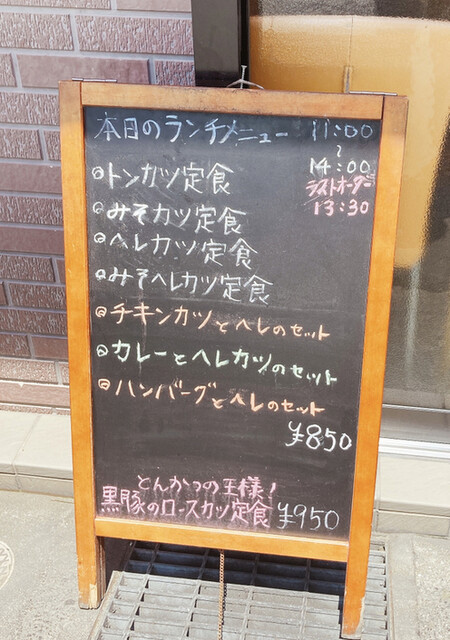 本日のランチメニュー 11:00
~
14:00
ラストオーダー
13:30
◎トンカツ定食
◎みそカツ定食
◎ヘレカツ定食
◎みそヘレカツ定食
◎チキンカツとヘレのセット
◎カレーとヘレカツのセット
◎ハンバーグとヘレのセット
¥850
とんかつの王様!
黒豚のロースカツ定食 ¥950